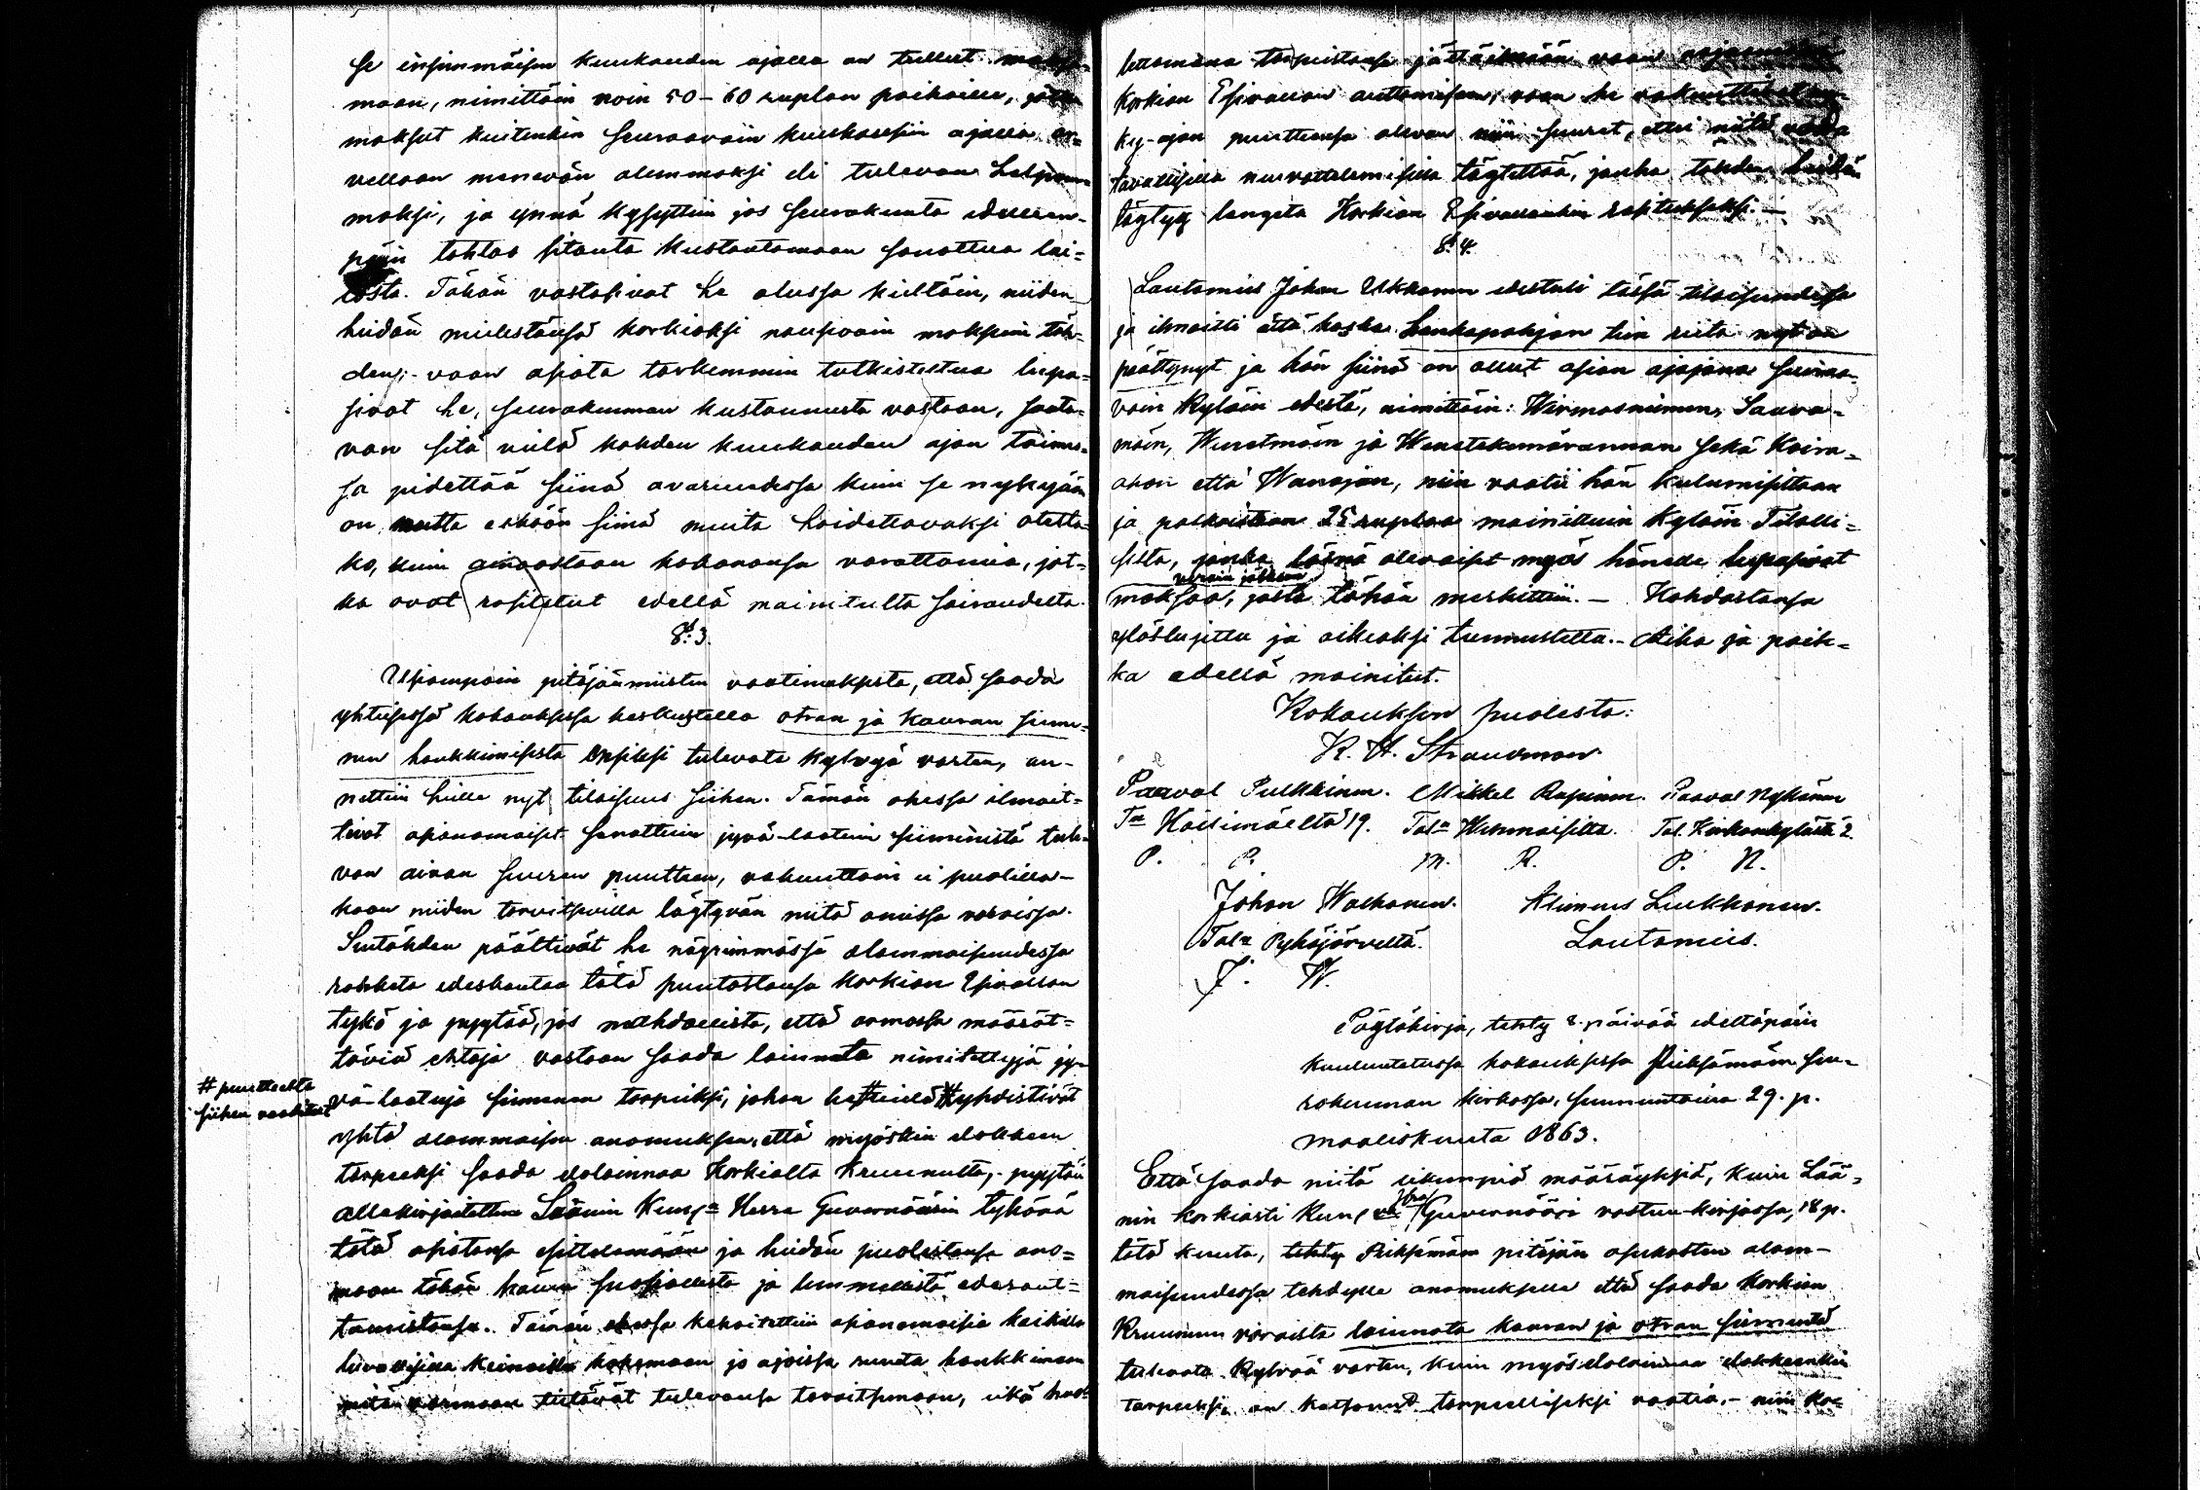 se ensimmäisen kuukauden ajalla on tullut
maan, nimittäin noin 50-60 ruplan paikoille,
maksut kuitenkin seuraavain kuukausein ajalla ar=
vellaan menevän alemmaksi eli tulevan
maksi, ja ynnä kysyttiin jos seurakunta edellen-
päin tahtoo sitouta kustantamaan sanottua lai=
tosta. Tähän vastasivat he alussa kieltäin, niiden
heidän mielestänsä korkiaksi nousevain maksuin täh-
den; vaan asiata tarkemmin tutkisteltua lupa=
sivat he, seurakunnan kustannusta vastaan, saata-
van sitä vielä kahden kuukauden ajan toimes=
sa pidettää siinä avaruudessa kuin se nykyään
on mutta eiköön siinä muita hoidettavaksi otetta-
ko, kuin ainoastaan kokonansa varattomia, jot-
ka ovat rasitetut edellä mainitulta sairaudelta.
§ 3.
Useampain pitäjäänmiesten vaatimuksesta, että saada
yhteisessä kokouksessa keskustella otran ja kauran sieme-
nen hankkimisesta ensiksi tulevata kylvyä varten, an-
nettiin heille nyt tilaisuus siihen. Tämän ohessa ilmoit=
tivat asianomaiset sanottuin jyvä-laatuin siemenistä tule-
van aivan suuren puutteen, vakuuttain ei puolilla-
kaan niiden tarvitsevilla löytyvän niitä omissa varoissa.
Sentähden päättivät he nöyrimmässä alammaisuudessa
rohketa edeskantaa tätä puutostansa Korkian Esivallan
tykö ja pyytää, jos mahdollista, että armossa määrät=
täviä ehtoja vastaan saada lainata nimitettyjä jy-
vä-laatuja siemenen tarpeiksi, johon he # yhdistivät
# puutteelta
siihen vaaditut
yhtä alammaisen anomuksen, että myöskin elokkeen
tarpeeksi saada elolainaa Korkialta Kruunulta,- pyytäin
allekirjoitettua Läänin Herra Guvernöörin tyköä
tätä asiatansa esittelemään ja heidän puolestansa ano=
maan tähän hänen suosiollista ja lemmellistä edesaut=
tamistansa. Tämän ohessa kehoitettiin asianomaisia kaikilla
luvallisilla keinoilla kokemaan jo ajoissa ruveta hankkimaan
mitä varmaan tietävät tulevansa tarvitsemaan, eikä huo=
lettomana tarpeistansa jättäimään vaan
Korkian Esivallan auttamiseen, vaan he vakuuttivat ny-
ky-ajan puutteensa olevan niin suuret, ettei niitä
tavallisilla neuvottelemisilla täytettää, jonka tähden heidän
täytyy langeta Korkian Esivallankin rasitukseksi.-
§ 4.
Lautamies Johan Ukkonen edestuli tässä tilaisuudessa
ja ilmoitti että koska Hankapohjan tien riita nyt on
päättynyt ja hän siinä on ollut asian ajajana seuraa-
vain kyläin edestä, nimittäin: Wirmasniemen, Saara-
mäin, ja sekä Koira=
ahon että Wanajan, niin vaatii hän kulumisistaan
ja palkoistaan 25 ruplaa mainittuin kyläin Tilalli=
silta, jonka läsnä olevaiset myös hänelle lupasivat
veroin jälkeen
maksaa, josta tähän merkittiin.- Kohdastansa
ylösluettu ja oikeaksi tunnustettu.- Aika ja paik=
ka edellä mainitut.
Kokouksen puolesta:
K. H. Strandman
Paaval Pulkkinen. Mikkel Rapinen. Paaval Nykänen
Häesimäeltä 19.
P. P. M. R. P. N.
Johan Walkonen. Asimus Liukkonen.
Pyhäjärveltä. Lautamies.
J. W.
Pöytäkirja, tehty 8 päivää edeltäpäin
kuulutetussa kokouksessa Pieksämäen seu=
rakunnan kirkossa, sunnuntaina 29. p.
maaliskuuta 1863.
Että saada niitä likempiä määräyksiä, kuin Lää=
nin korkiasti Hra Guvernööri vastuu-kirjassa, 18 p.
tätä kuuta, tehty Pieksämäen pitäjän asukasten alam-
maisuudessa tehdylle anomukselle että saada Korkian
Kruunun varoista lainata kauran ja otran siementä
tulevata kylvöä varten, kuin myös elolainaa elokkeenkin
tarpeeksi, on katsonut tarpeelliseksi vaatia,- niin ko=